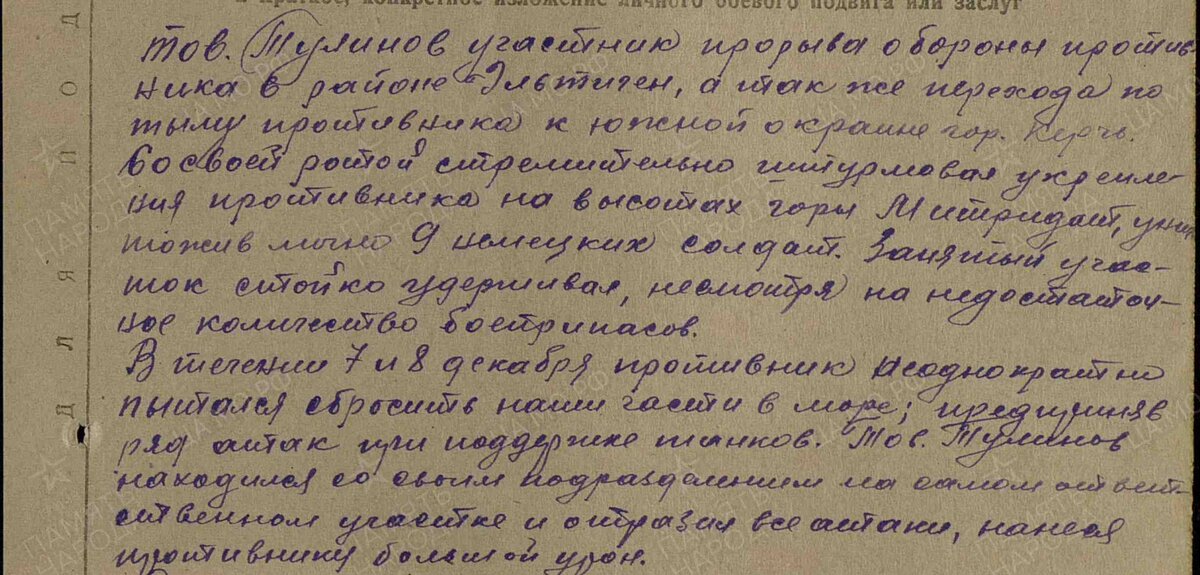 и краткое, конкретное изложение личного боевого подвига или заслуг
тов. Тулинов участник прорыва обороны против
ника в районе Эльтиген, а так же перехода по
тылу противника к южной окраине гор. Керчь.
Со своей ротой стремительно штурмовал укрепле-
ния противника на высотах горы Митридат, уни
тожив лично 9 немецких солдат. Занятый учас-
ток стойко удерживал, несмотря на недостаточ-
ное количество боеприпасов.
В течении 7 и 8 декабря противник неоднократно
пытался сбросить наши части в море; предприняв
ряд атак при поддержке танков. Тов. Тулинов
находился со своим подразделением на самом ответ-
ственном участке и отразил все атаки, нанеся
противнику большой урон.
ДЛЯ ПОД
ПАМЯТЬ НАРОДА
ЦАМО РФ